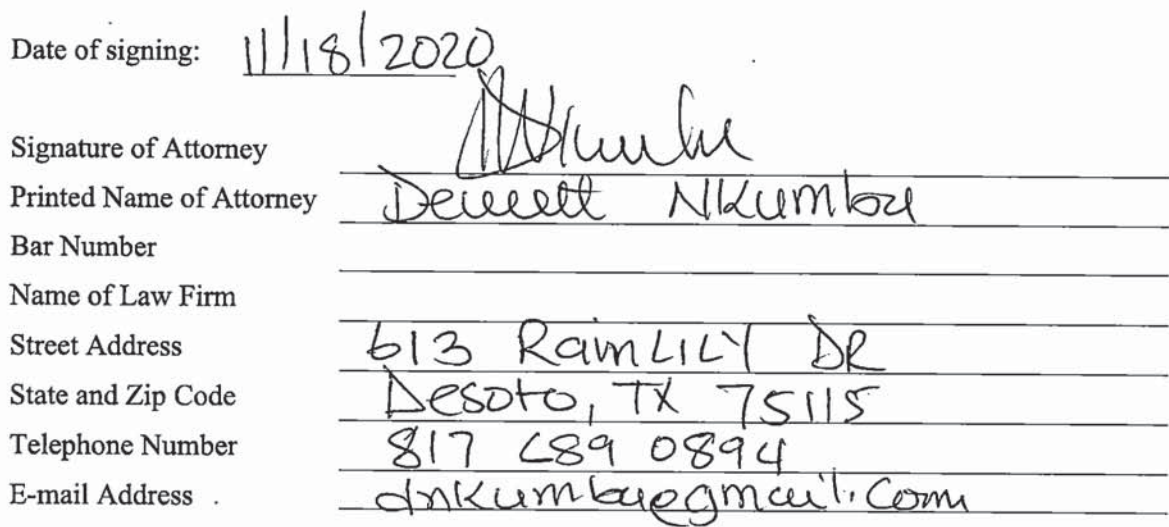 Date of signing: 11/18/2020
Signature of Attorney
Printed Name of Attorney Nkumbu
Bar Number
Name of Law Firm
Street Address 613 RainLILY DR
State and Zip Code Desoto, TX 75115
Telephone Number 817 689 0894
E-mail Address dnkumbu@gmail.com